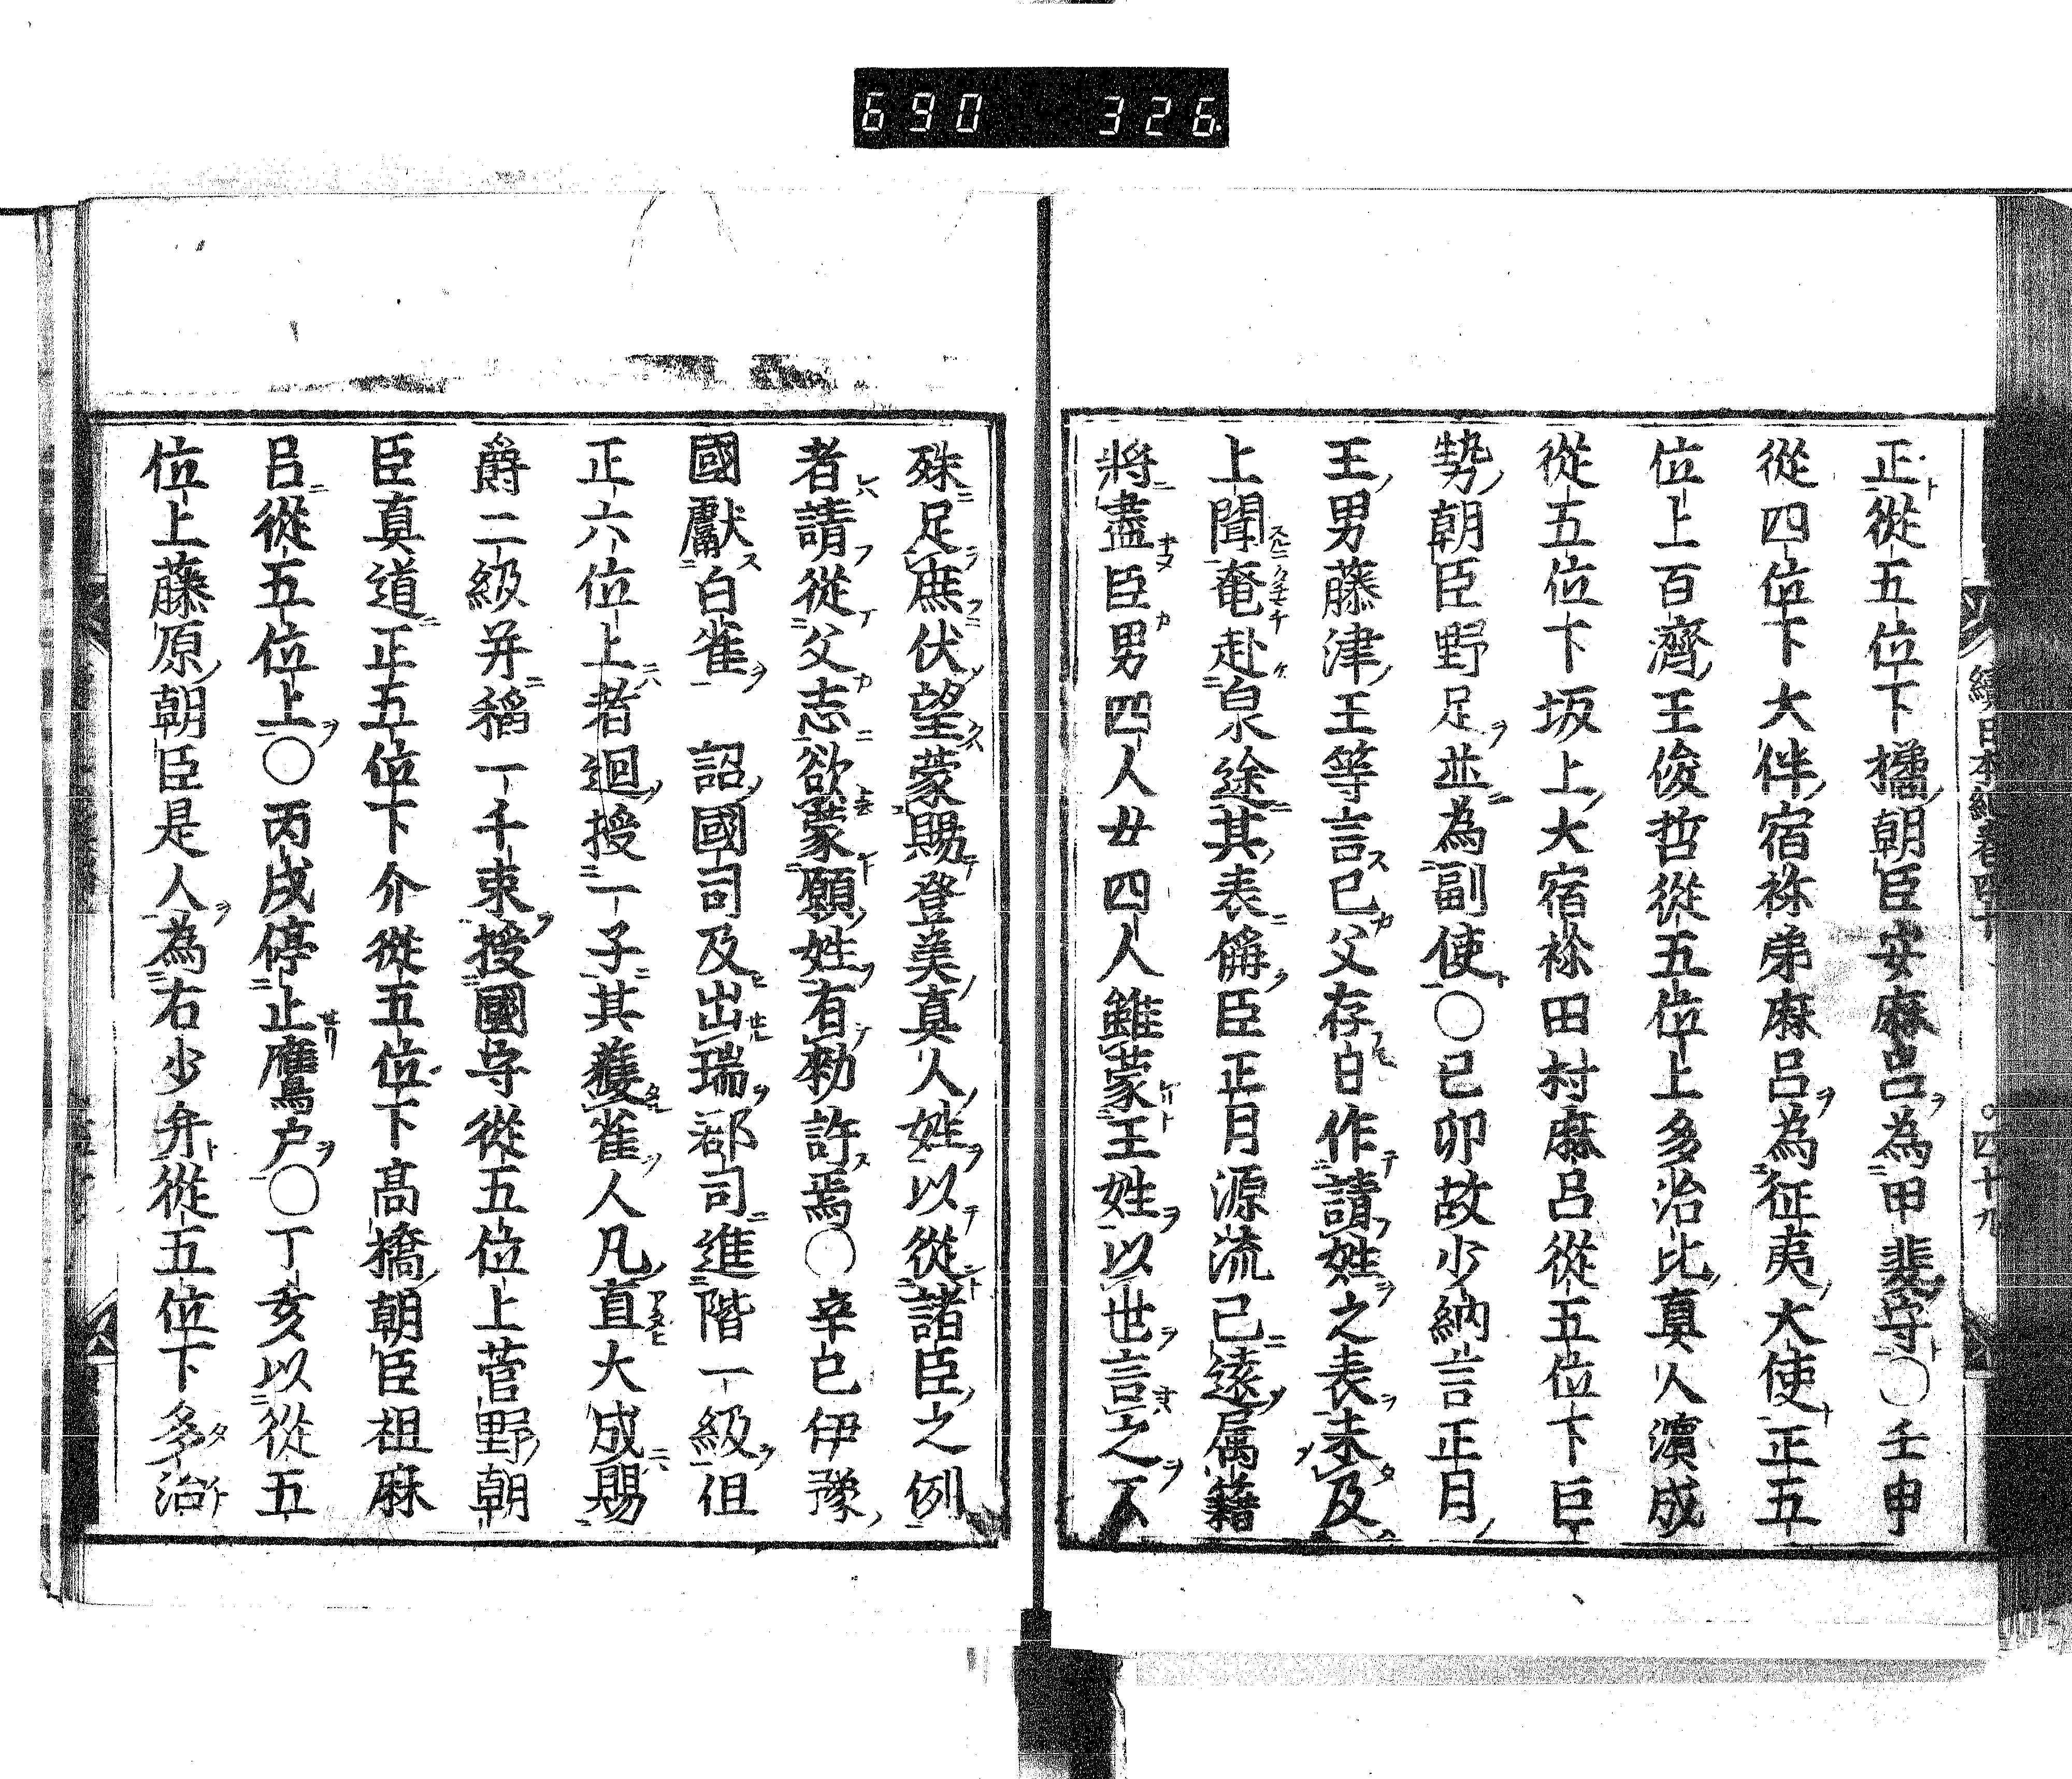 690 326
正從五位下橘朝臣安麻呂為甲斐守〇壬申
從四位下大伴宿祢弟麻呂為征夷大使正五
位上百濟王俊哲從五位上多治比真人濱成
從五位下坂上大宿祢田村麻呂從五位下巨
勢朝臣野足並為副使〇已卯故少納言正月
王男藤津王等言己父存日作請姓之表未及
上聞奄赴泉途其表偁臣正月源流已遠属籍
將盡臣男四人女四人雖蒙王姓以世言之不
殊足庶伏望蒙賜登美真人姓以從諸臣之例
者請從父志欲蒙願姓有勑許焉〇辛巳伊豫
國獻白雀 詔國司及出瑞郡司進階一級徂
正六位上者廻授一子其獲雀人凡直大成賜
爵二級并稲一千束授國守從五位上菅野朝
臣真道正五位下介從五位下髙橋朝臣祖麻
呂從五位上〇丙戌停止鷹户〇丁亥以從五
位上藤原朝臣是人為右少弁從五位下多治
續日本紀卷四十
〇四十九